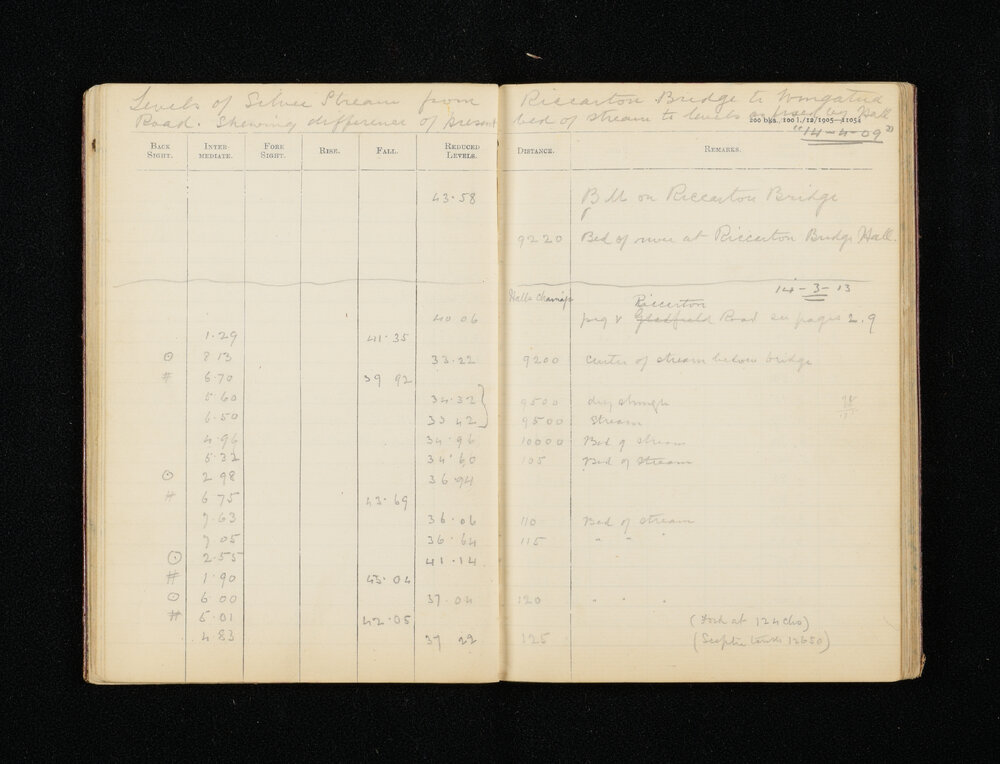 Levels of Silver Stream from Riccarton Bridge to Wingatui
Road. Shewing difference of present bed of stream to levels as fixed by Hall
200 bks., 100 l./12/1905—11054
"14-4-09"
BACK SIGHT. INTER MEDIATE. FORE SIGHT. RISE. FALL. REDUCED LEVELS. DISTANCE. REMARKS.
43.58 BM on Riccarton Bridge
9220 Bed of river at Riccarton Bridge Hall.
14-3-13
Halls Chainage Riccarton
40 06 peg & Gladfield Road see pages 2.9
1.29 41.35
⊙ 8 13 33.22 9200 Center of stream below bridge
# 6.70 39 92
5.60 34.32 9500 dry
6.50 33 42 9500 Stream
4.96 34.96 10000 Bed of stream
5.32 34.60 105 Bed of stream
⊙ 2 98 36.94
# 6 75 43.69
7.63 36.06 110 Bed of stream
7 05 36.64 115 " " "
⊙ 2.55 41.14
# 1.90 43.04
⊙ 6 00 37.04 120 " " "
# 5.01 42.05 (Fork at 124 chs)
4.83 37 22 125 (12650)